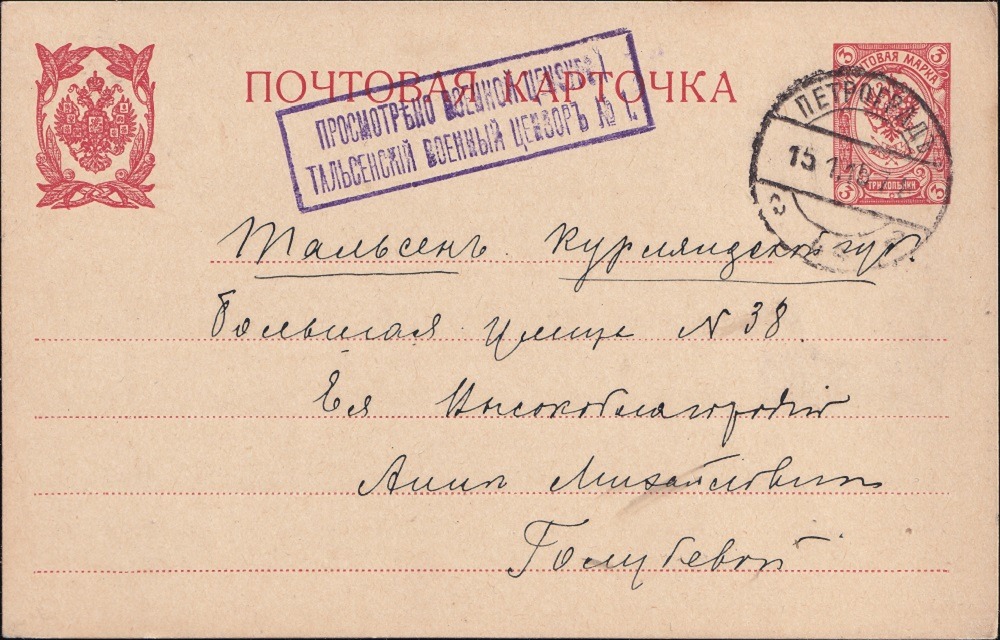 ПОЧТОВАЯ КАРТОЧКА
ПРОСМОТРѢНО ВОЕННОЙ ЦЕНЗУРОЙ
ТАЛЬСЕНСКІЙ ВОЕННЫЙ ЦЕНЗОРЪ № 1.
3 3
ПОЧТОВАЯ МАРКА
ТРИ КОПѢЙКИ
3 3
ПЕТРОГРАДЪ
15 1 16
Тальсенъ Курляндской губ.
Большая улица N 38
Ея Высокоблагородію
Аннѣ Михайловнѣ
Голубевой